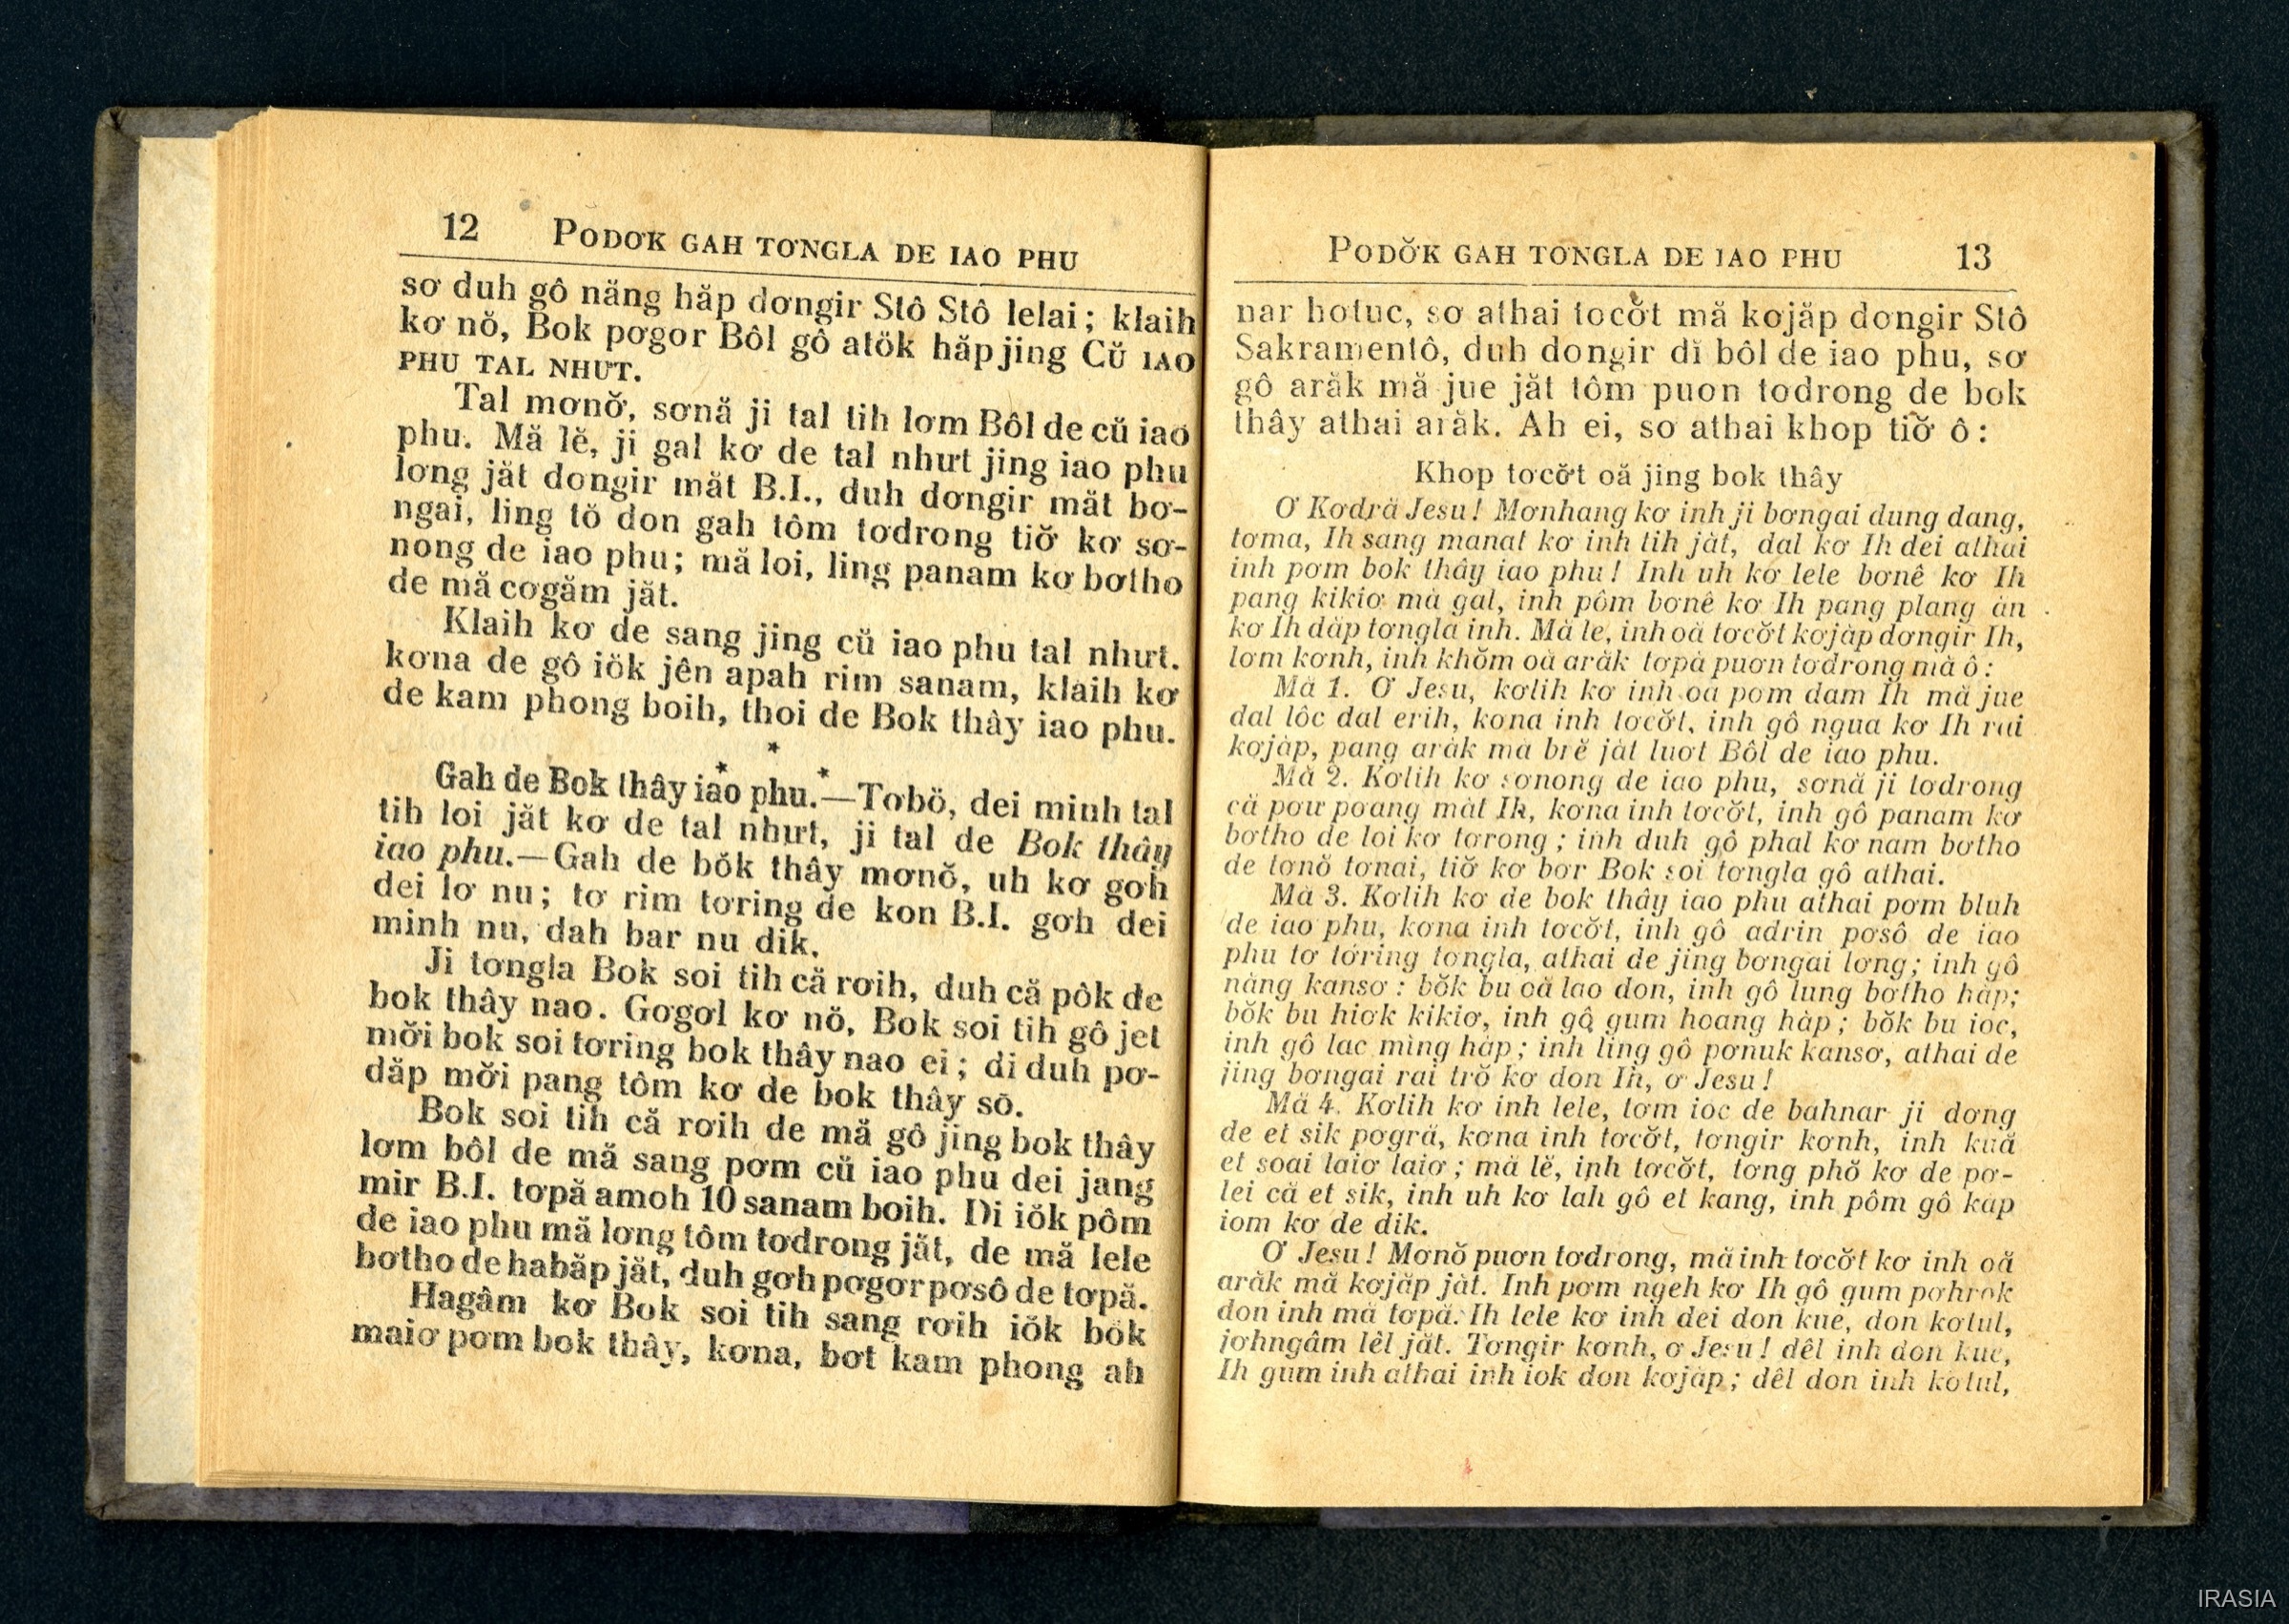 12 PODƠK GAH TƠNGLA DE IAO PHU
sơ duh gô năng hăp dơngir Stô Stô lelai; klaih
kơ nŏ, Bok pơgơr Bôl gô atŏk hăp jing Cŭ IAO
PHU TAL NHƯT.
Tal mơnŏ, sơnă ji tal tih lơm Bôl de cŭ iao
phu. Mă lĕ, ji gal kơ de tal nhưt jing iao phu
lơng jăt dongir măt B.I., duh dơngir măt bơ-
ngai, ling tŏ don gah tôm tơdrong tiơ̆ kơ sơ-
nong de iao phu; mă loi, ling panam kơ bơtho
de mă cơgăm jăt.
Klaih kơ de sang jing cŭ iao phu tal nhưt.
kơna de gô iŏk jên apah rim sanam, klaih kơ
de kam phong boih, thoi de Bok thây iao phu.
* * *
Gah de Bok thây iao phu.—Tơbŏ, dei minh tal
tih loi jăt kơ de tal nhưt, ji tal de Bok thây
iao phu.—Gah de bŏk thây mơnŏ, uh kơ gơh
dei lơ nu; tơ rim tơring de kon B.I. gơh dei
minh nu, dah bar nu dik.
Ji tơngla Bok soi tih că rơih, duh că pôk de
bok thây nao. Gơgơl kơ nŏ, Bok soi tih gô jet
mơ̆i bok soi tơring bok thây nao ei; di duh pơ-
dăp mơ̆i pang tôm kơ de bok thây sŏ.
Bok soi tih că rơih de mă gô jing bok thây
lơm bôl de mă sang pơm cŭ iao phu dei jang
mir B.I. tơpă amoh 10 sanam boih. Di iŏk pôm
de iao phu mă lơng tôm tơdrong jăt, de mă lele
bơtho de habăp jăt, duh gơh pơgơr pơsô de tơpă.
Hagâm kơ Bok soi tih sang rơih iŏk bŏk
maiơ pơm bok thây, kơna, bơt kam phong ah
PODƠ̆K GAH TƠNGLA DE IAO PHU 13
nar hơtuc, sơ athai tơcơ̆t mă kơjăp dơngir Stô
Sakramentô, duh dơngir dĭ bôl de iao phu, sơ
gô arăk mă jue jăt tôm puơn tơdrong de bok
thây athai arăk. Ah ei, sơ athai khop tiơ̆ ô:
Khop tơcơ̆t oă jing bok thây
Ơ Kơdră Jesu! Mơnhang kơ inh ji bơngai dung dang,
tơma, Ih sang manat kơ inh tih jăt, dal kơ Ih dei athai
inh pơm bok thây iao phu! Inh uh kơ lele bơnê kơ Ih
pang kikiơ mă gal, inh pôm bơnê kơ Ih pang plang ăn
kơ Ih dăp tơngla inh. Mă le, inh oă tơcơ̆t kơjăp dơngir Ih,
lơm kơnh, inh khŏm oă arăk tơpă puơn tơdrong mă ô:
Mă 1. Ơ Jesu, kơlih kơ inh oă pơm dam Ih mă jue
dal lôc dal erih, kơna inh tơcơ̆t, inh gô ngua kơ Ih rai
kơjăp, pang arăk mă brĕ jăt luơt Bôl de iao phu.
Mă 2. Kơlih kơ sơnong de iao phu, sơnă ji tơdrong
că pơư pơang măt Ih, kơna inh tơcơ̆t, inh gô panam kơ
bơtho de loi kơ tơrong; inh duh gô phal kơ nam bơtho
de tơnŏ tơnai, tiơ̆ kơ bơr Bok soi tơngla gô athai.
Mă 3. Kơlih kơ de bok thây iao phu athai pơm bluh
de iao phu, kơna inh tơcơ̆t, inh gô adrin pơsô de iao
phu tơ tơring tơngla, athai de jing bơngai lơng; inh gô
năng kansơ: bŏk bu oă lao don, inh gô lung bơtho hăp;
bŏk bu hiơk kikiơ, inh gô gum hoang hăp; bŏk bu ioc,
inh gô lac mìng hăp; inh ling gô pơnuk kansơ, athai de
jing bơngai rai trŏ kơ don Ih, ơ Jesu!
Mă 4. Kơlih kơ inh lele, tơm ioc de bahnar ji dơng
de et sik pơgră, kơna inh tơcơ̆t, tơngir kơnh, inh kuă
et soai laiơ laiơ; mă lĕ, inh tơcơ̆t, tơng phŏ kơ de pơ-
lei că et sik, inh uh kơ lah gô et kang, inh pôm gô kăp
iom kơ de dik.
Ơ Jesu! Mơnŏ puơn tơdrong, mă inh tơcơ̆t kơ inh oă
arăk mă kơjăp jăt. Inh pơm ngeh kơ Ih gô gum pơhrơk
don inh mă tơpă. Ih lele kơ inh dei don kue, don kơtul,
jơhngâm lêl jăt. Tơngir kơnh, ơ Jesu! dêl inh don kue,
Ih gum inh athai inh iok don kơjăp; dêl don inh kơtul,
IRASIA